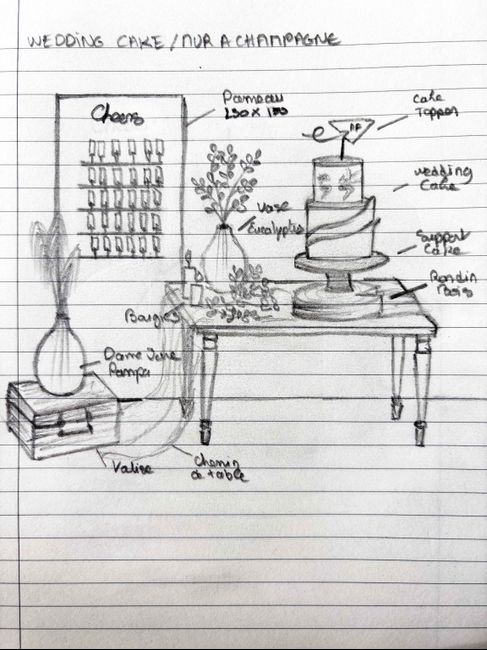 WEDDING CAKE / MUR A CHAMPAGNE
Cheers
Panneau
Cake
Topper
Wedding
Cake
Vase
Eucalyptus
Support
Cake
Rondin
Bois
Bougies
Dame Jane
Pampa
Valise
Chemin
de table